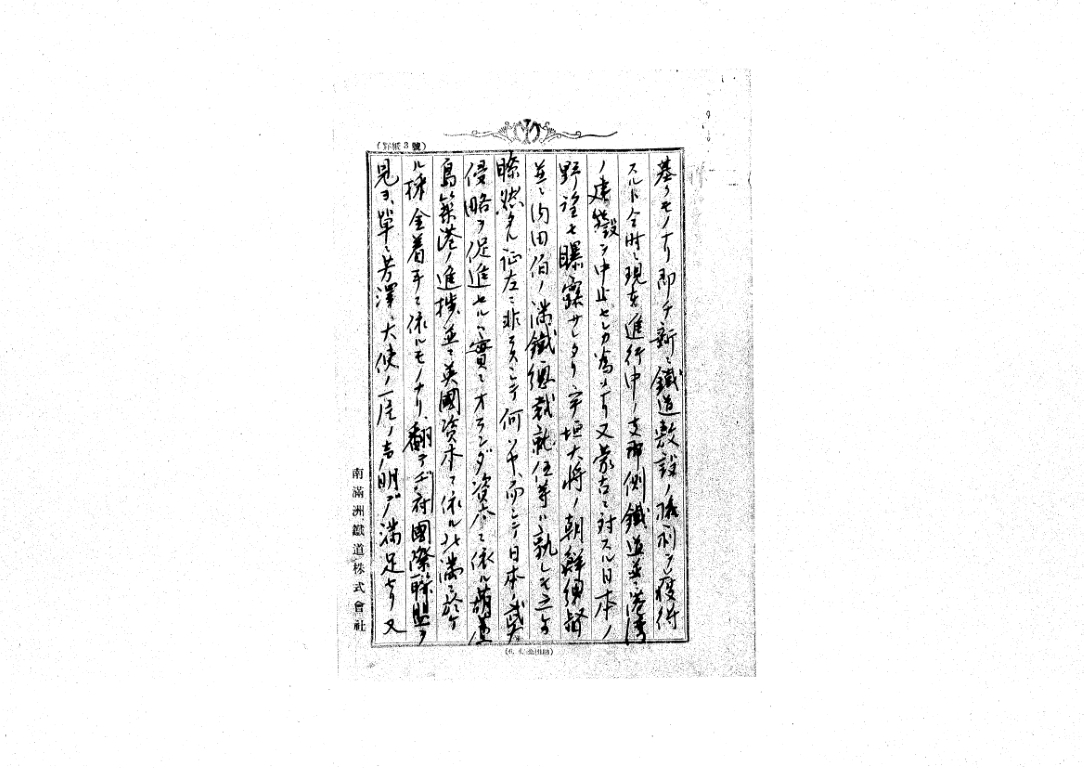 (罫紙3號)
基クモノナリ即チ新ニ鐵道敷設ノ權利ヲ獲得
スルト仝時ニ現在進行中ノ支那側鐵道並ニ港湾
ノ建設ヲ中止セシカ為ナリ又蒙古ニ対スル日本ノ
野望モ曝露サレタリ宇垣大将ノ朝鮮總督
並ニ内田伯ノ満鐵總裁就任等ハ孰レモ之カ
瞭然タル証左ニ非スシテ何ソヤ、而シテ日本ノ武力
侵略ヲ促進セルハ實ニオランダ資本ニ依ル葫蘆
島築港ノ進捗並ニ英國資本ニ依ル北満ニ於ケ
ル採金着手ニ依ルモノナリ、翻テ 府國際聯盟ヲ
見ヨ、単ニ芳澤大使ノ一片ノ声明ニ満足セリ又
南滿洲鐵道株式會社